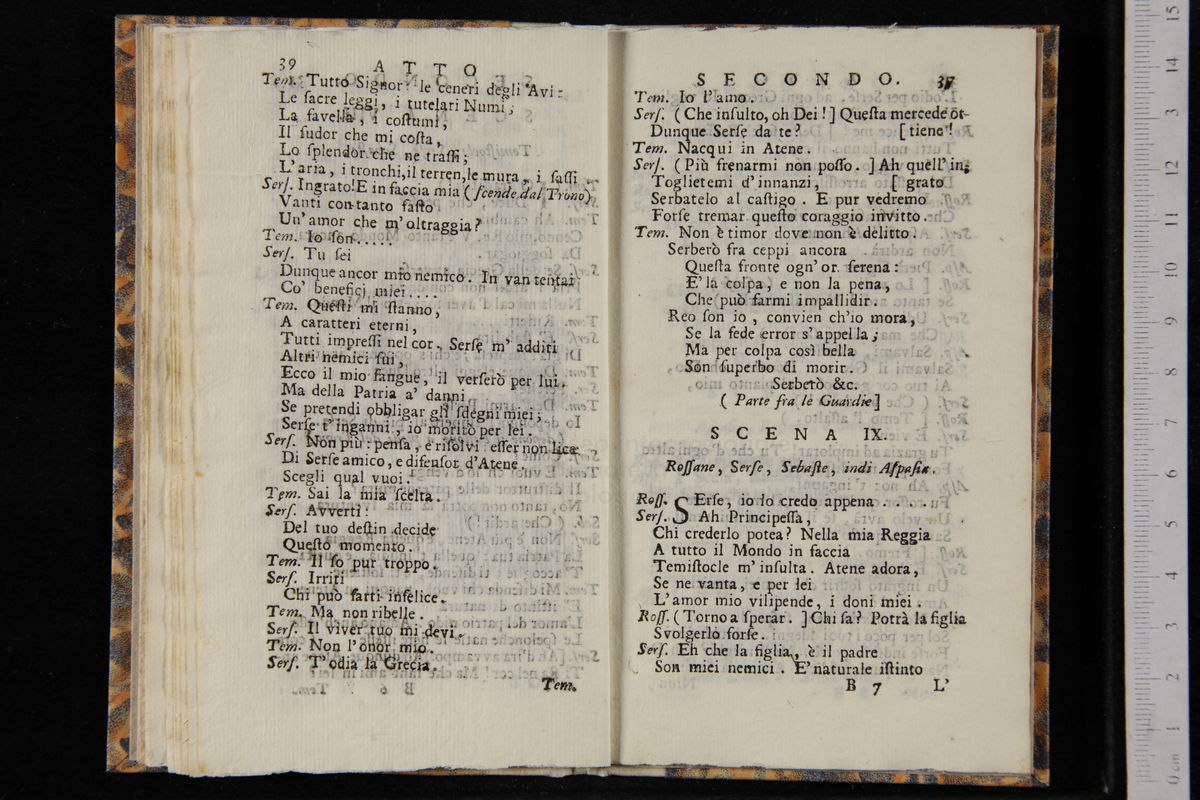 39 ATTO
Tem. Tutto Signor: le ceneri degli Avi:
Le ſacre leggi, i tutelari Numi;
La favella, i coſtumi,
Il ſudor che mi coſta,
Lo ſplendor che ne traſſi;
L'aria, i tronchi, il terren, le mura, i ſaſſi.
Serſ. Ingrato! E in faccia mia (ſcende dal Trono)
Vanti con tanto faſto
Un' amor che m' oltraggia?
Tem. Io ſon.....
Serſ. Tu ſei
Dunque ancor mio nemico. In van tentai
Co' beneficj miei....
Tem. Queſti mi ſtanno,
A caratteri eterni,
Tutti impreſſi nel cor. Serſe m' additi
Altri nemici ſui,
Ecco il mio ſangue, il verſerò per lui.
Ma della Patria a' danni
Se pretendi obbligar gli ſdegni miei;
Serſe t' inganni, io morirò per lei.
Serſ. Non più: penſa, e riſolvi: eſſer non lice
Di Serſe amico, e difenſor d' Atene.
Scegli qual vuoi.
Tem. Sai la mia ſcelta.
Serſ. Avverti:
Del tuo deſtin decide
Queſto momento.
Tem. Il ſo pur troppo.
Serſ. Irriti
Chi può farti infelice.
Tem. Ma non ribelle.
Serſ. Il viver tuo mi devi.
Tem. Non l'onor mio.
Serſ. T'odia la Grecia.
Tem.
SECONDO. 37
Tem. Io l'amo.
Serſ. (Che inſulto, oh Dei!] Queſta mercede ot-
Dunque Serſe da te? [tiene!
Tem. Nacqui in Atene.
Serſ. (Più frenarmi non poſſo.] Ah quell' in-
Toglietemi d' innanzi, [grato
Serbatelo al caſtigo. E pur vedremo
Forſe tremar queſto coraggio invitto.
Tem. Non è timor dove non è delitto.
Serberò fra ceppi ancora
Queſta fronte ogn' or ſerena:
E' la colpa, e non la pena,
Che può farmi impallidir.
Reo ſon io, convien ch'io mora,
Se la fede error s' appella;
Ma per colpa così bella
Son ſuperbo di morir.
Serberò &c.
(Parte fra le Guardie]
SCENA IX.
Roſſane, Serſe, Sebaſte, indi Aſpaſia.
Roſſ. SErſe, io lo credo appena....
Serſ. Ah Principeſſa,
Chi crederlo potea? Nella mia Reggia
A tutto il Mondo in faccia
Temiſtocle m' inſulta. Atene adora,
Se ne vanta, e per lei
L'amor mio vilipende, i doni miei.
Roſſ. (Torno a ſperar.] Chi ſa? Potrà la figlia
Svolgerlo forſe.
Serſ. Eh che la figlia, è il padre
Son miei nemici. E' naturale iſtinto
B 7 L'